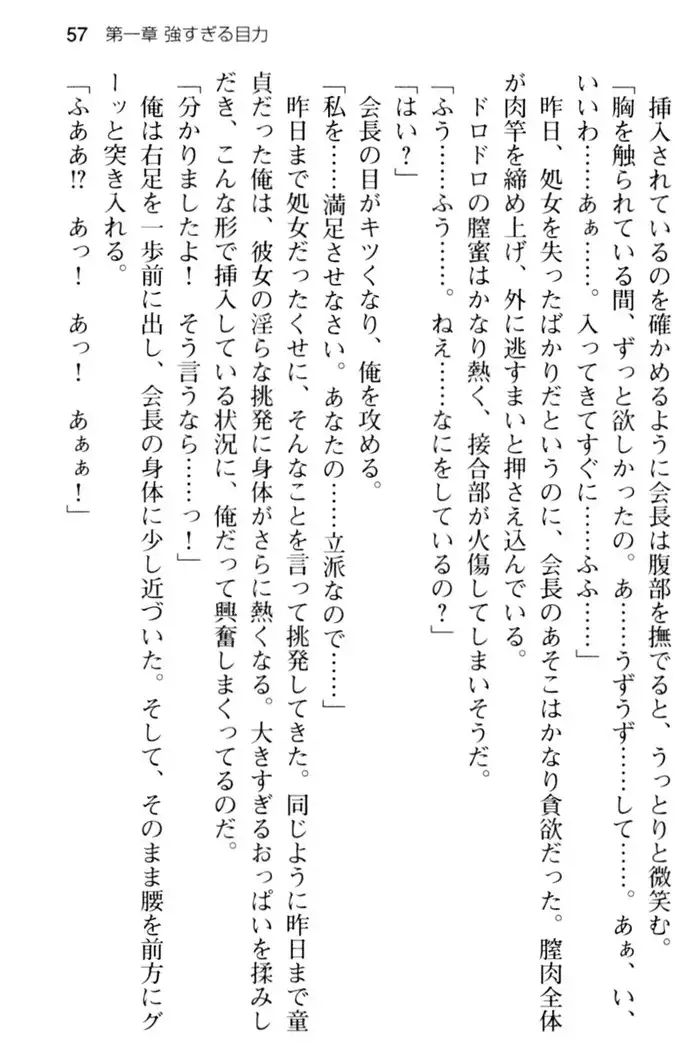 57 第一章 強すぎる目力
挿入されているのを確かめるように会長は腹部を撫でると、うっとりと微笑む。
「胸を触られている間、ずっと欲しかったの。あ……うずうず……して……。あぁ、い、
いいわ……あぁ……。入ってきてすぐに……ふふ……」
昨日、処女を失ったばかりだというのに、会長のあそこはかなり貪欲だった。膣肉全体
が肉竿を締め上げ、外に逃すまいと押さえ込んでいる。
ドロドロの膣蜜はかなり熱く、接合部が火傷してしまいそうだ。
「ふう……ふう……。ねえ……なにをしているの？」
「はい？」
会長の目がキツくなり、俺を攻める。
「私を……満足させなさい。あなたの……立派なので……」
昨日まで処女だったくせに、そんなことを言って挑発してきた。同じように昨日まで童
貞だった俺は、彼女の淫らな挑発に身体がさらに熱くなる。大きすぎるおっぱいを揉みし
だき、こんな形で挿入している状況に、俺だって興奮しまくってるのだ。
「分かりましたよ！　そう言うなら……っ！」
俺は右足を一歩前に出し、会長の身体に少し近づいた。そして、そのまま腰を前方にグ
ーッと突き入れる。
「ふああ!?　あっ！　あっ！　あぁぁ！」